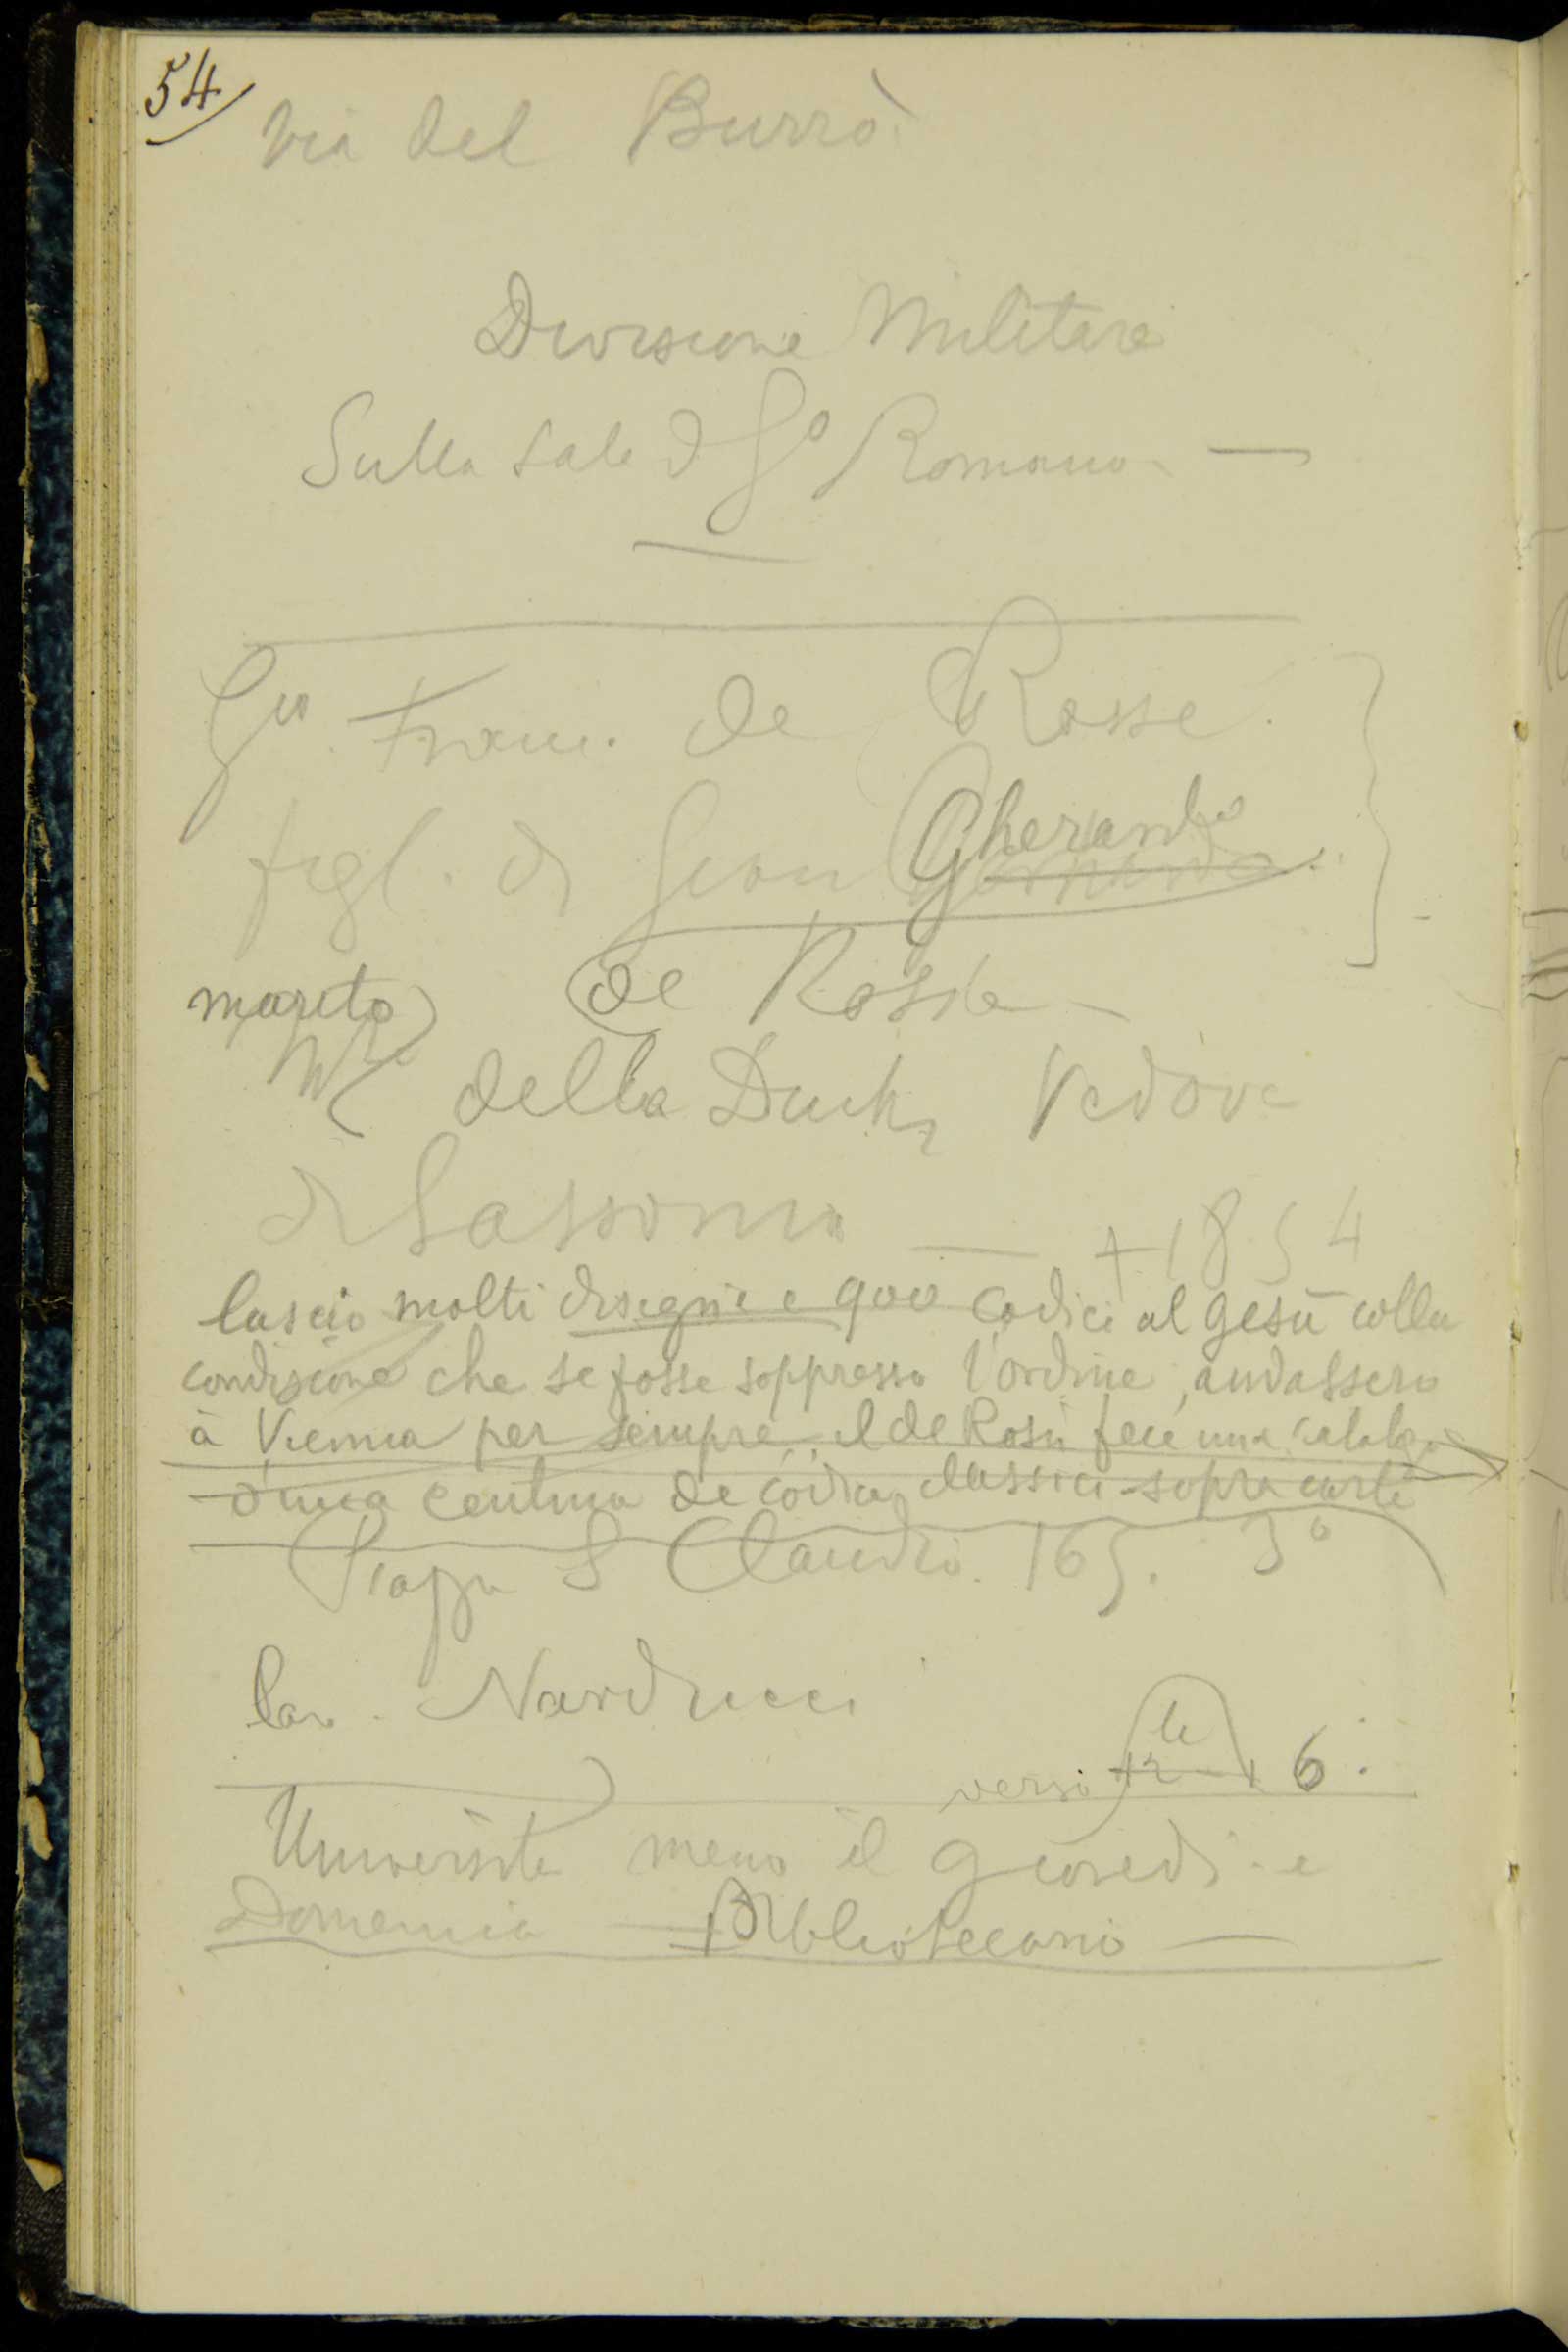 54
Via del Burrò
Divisione Militare
Sulla Sala d Go Romano —
Gio. Franc. de Rossi
figl. di Gian Gherardo
marito de Rossi
della Duch. Vedova
di Sassonia — + 1854
lascio molti disegni e 900 codici al gesù colla
condizione che se fosse soppresso l'ordine, andassero
à Vienna per sempre, il de Rossi fece una catalogo
d'una centina de codici classici sopra carte
Piazza S Claudio. 165. 3°
Cav. Narducci
verso le 6.
Università meno il giovedi e
Domenica — Bibliotecario —